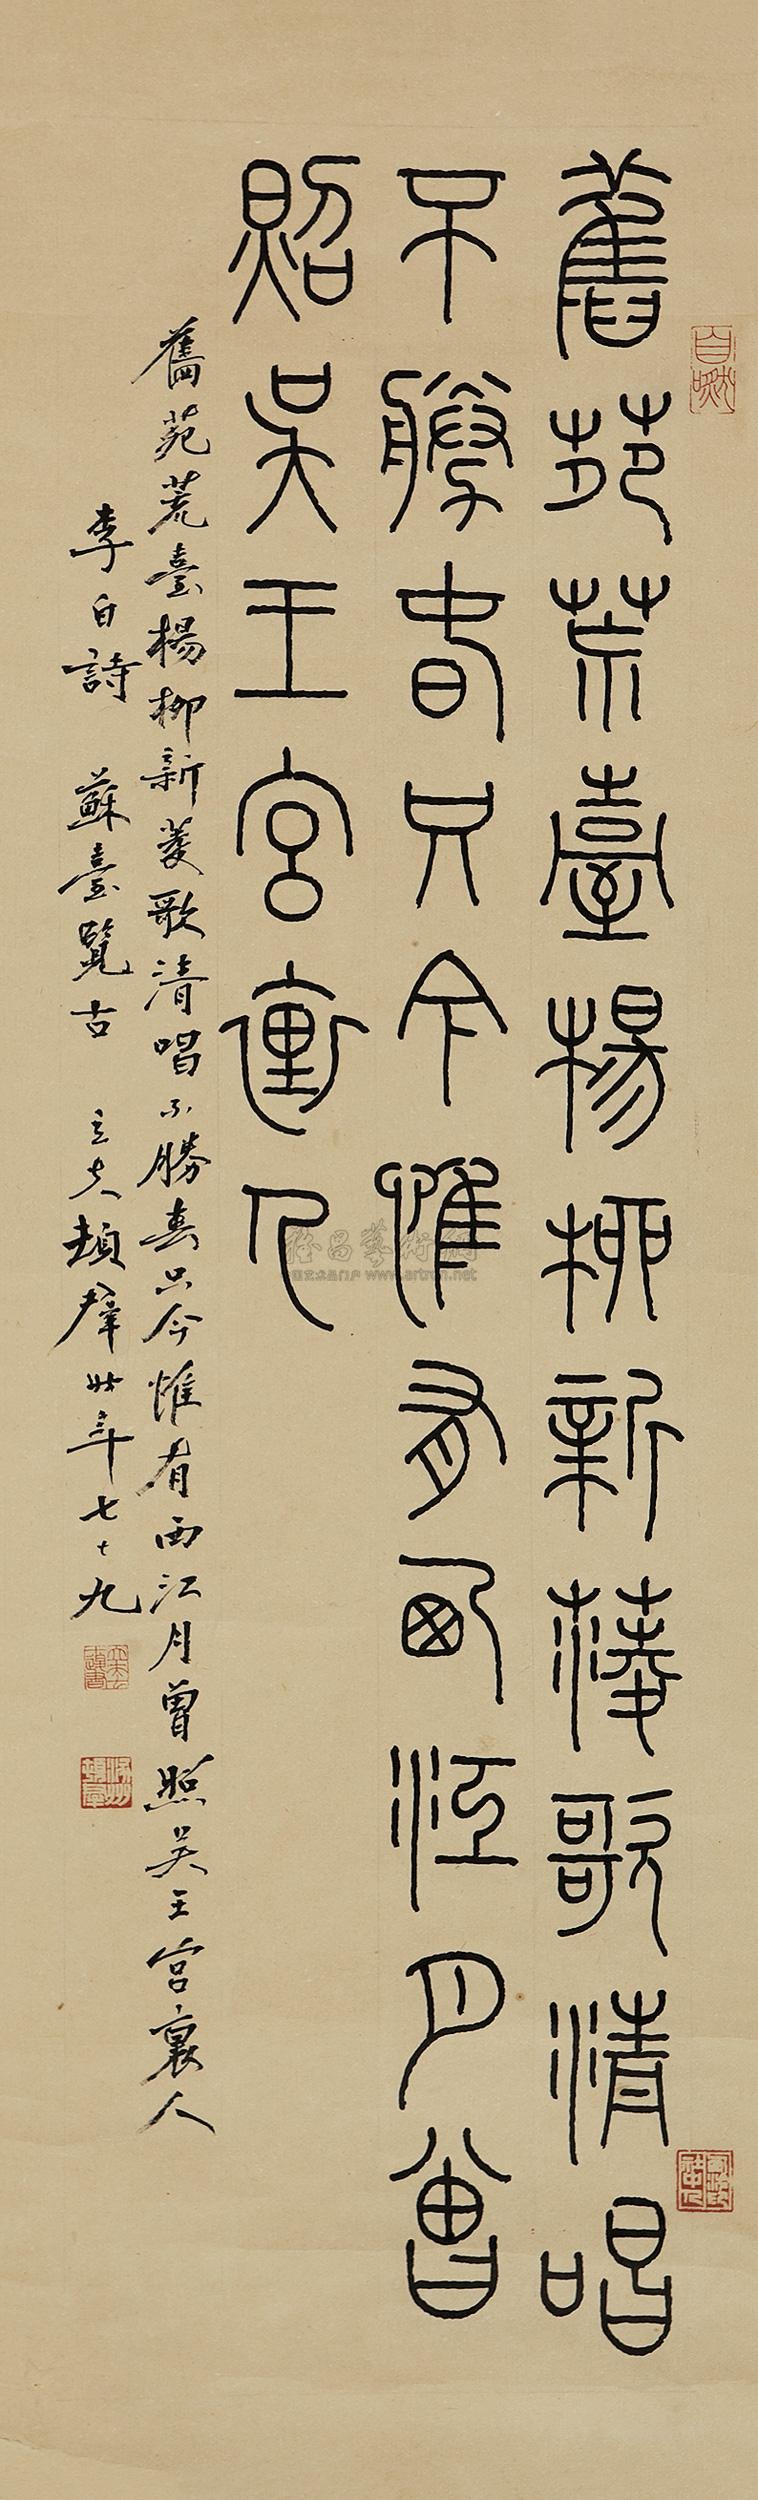 舊苑荒臺楊柳新菱歌清唱
不勝春只今惟有西江月曾
照吳王宮裏人
舊苑荒臺楊柳新菱歌清唱不勝春只今惟有西江月曾照吳王宮裏人
李白詩 蘇臺覽古 立夫頓群卅年七十九
自然
雅昌藝術網
中国艺术品门户 www.artron.net